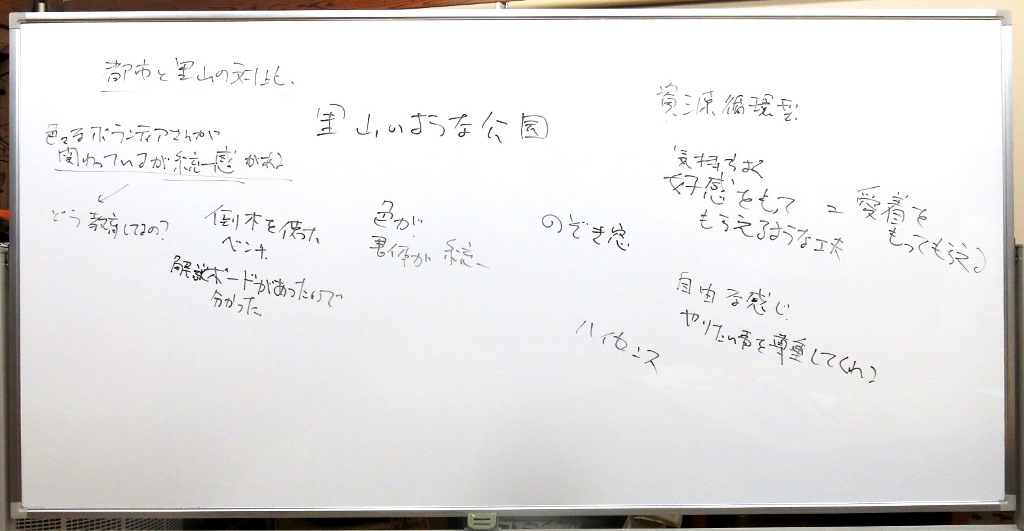 都市と里山の対比、
里山のような公園
色々なボランティアさんが
関わっているが統一感がある
どう教育してるの?
倒木を使った
ベンチ
解説ボードがあったので
分かった
色が
書体が統一
のぞき窓
ハイセンス
資源循環型
気持ちよく
好感をもて
もらえるような工夫
= 愛着を
もってもらえる
自由な感じ
やりたい事を尊重してくれる